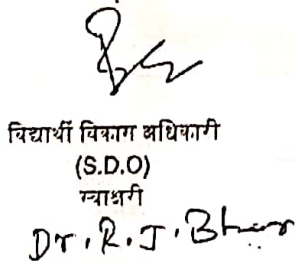 विद्यार्थी विकास अधिकारी
(S.D.O)
स्वाक्षरी
Dr. R. J.